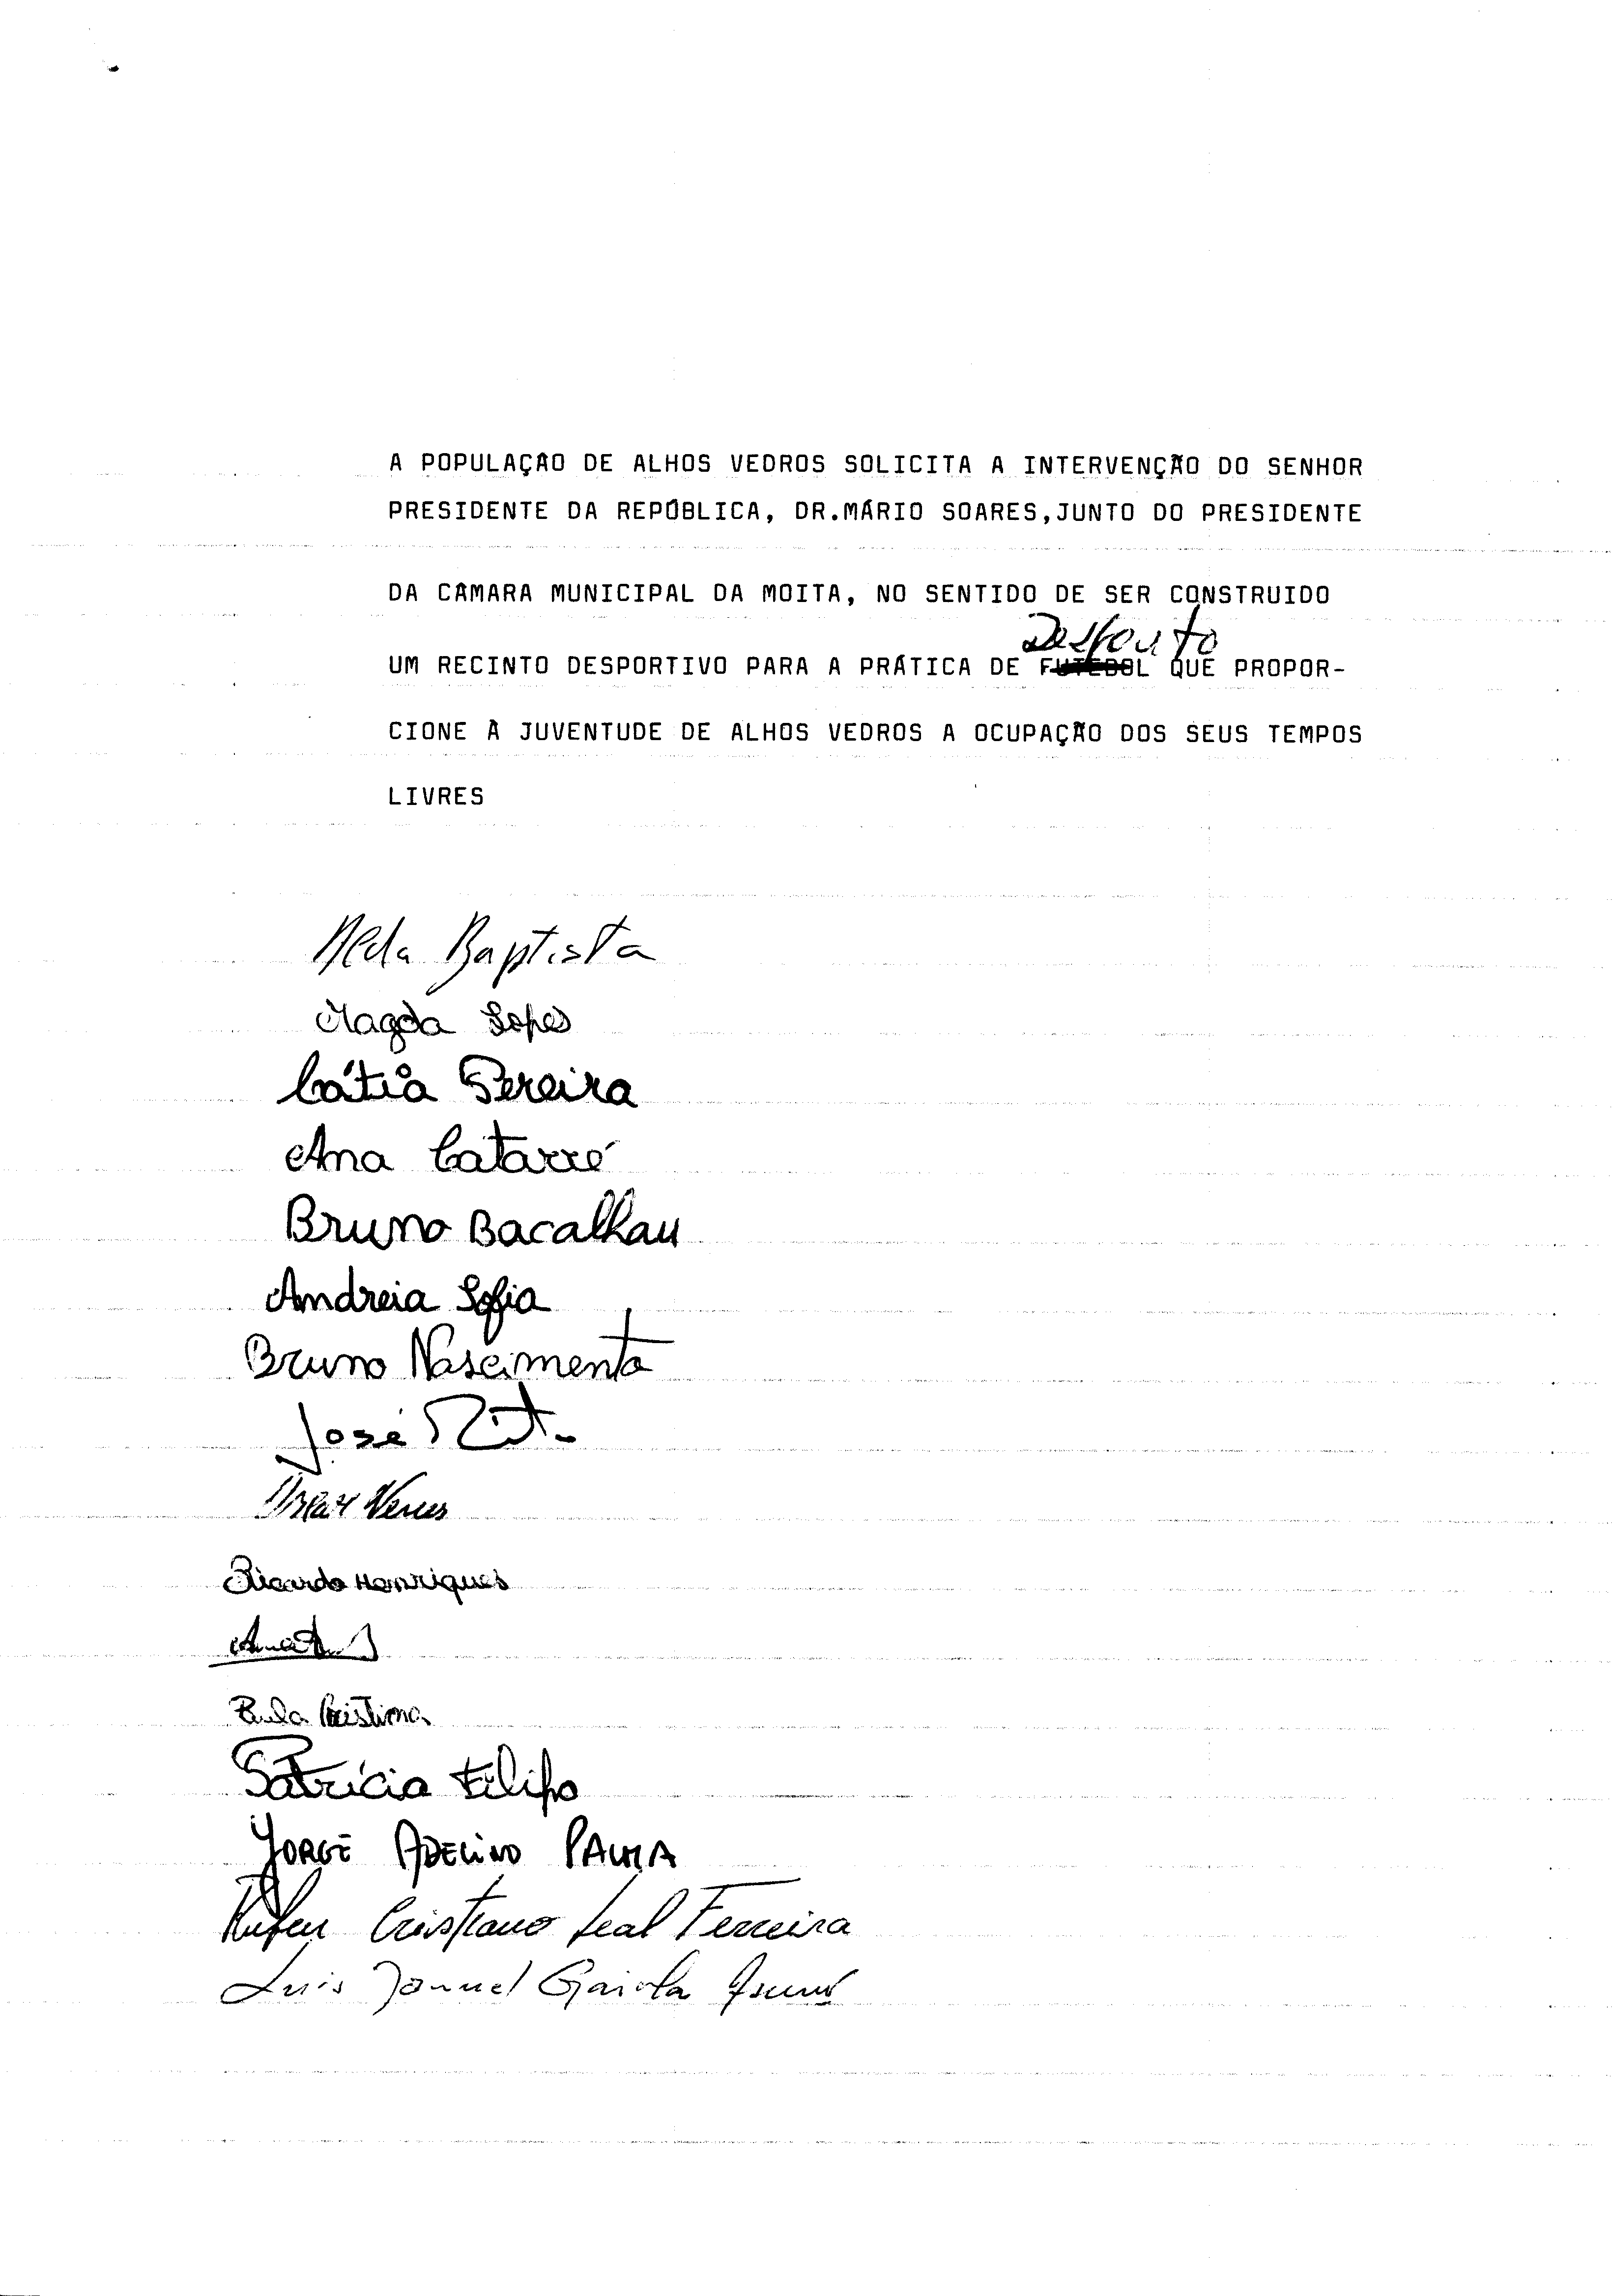 A POPULAÇÃO DE ALHOS VEDROS SOLICITA A INTERVENÇÃO DO SENHOR
PRESIDENTE DA REPÚBLICA, DR.MÁRIO SOARES,JUNTO DO PRESIDENTE
DA CÂMARA MUNICIPAL DA MOITA, NO SENTIDO DE SER CONSTRUIDO
Desporto
UM RECINTO DESPORTIVO PARA A PRÁTICA DE FUTEBOL QUE PROPOR-
CIONE À JUVENTUDE DE ALHOS VEDROS A OCUPAÇÃO DOS SEUS TEMPOS
LIVRES
Alda Baptista
Magda Lopes
Cátia Pereira
Ana Catarré
Bruno Bacalhau
Andreia Sofia
Bruno Nascimento
José
Ricardo Henriques
Paula Cristina
Patrícia Filipa
JORGE ADELINO PALMA
Cristiano Leal Ferreira
Luis Manuel Gaiola